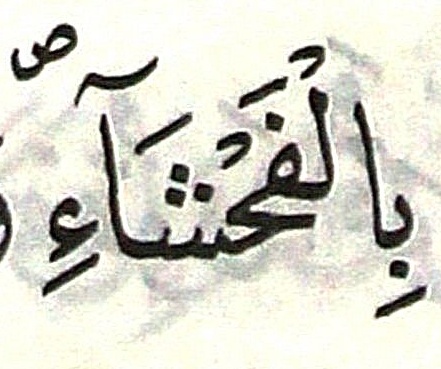 بِالْفَحْشَآءِ ۖ ص